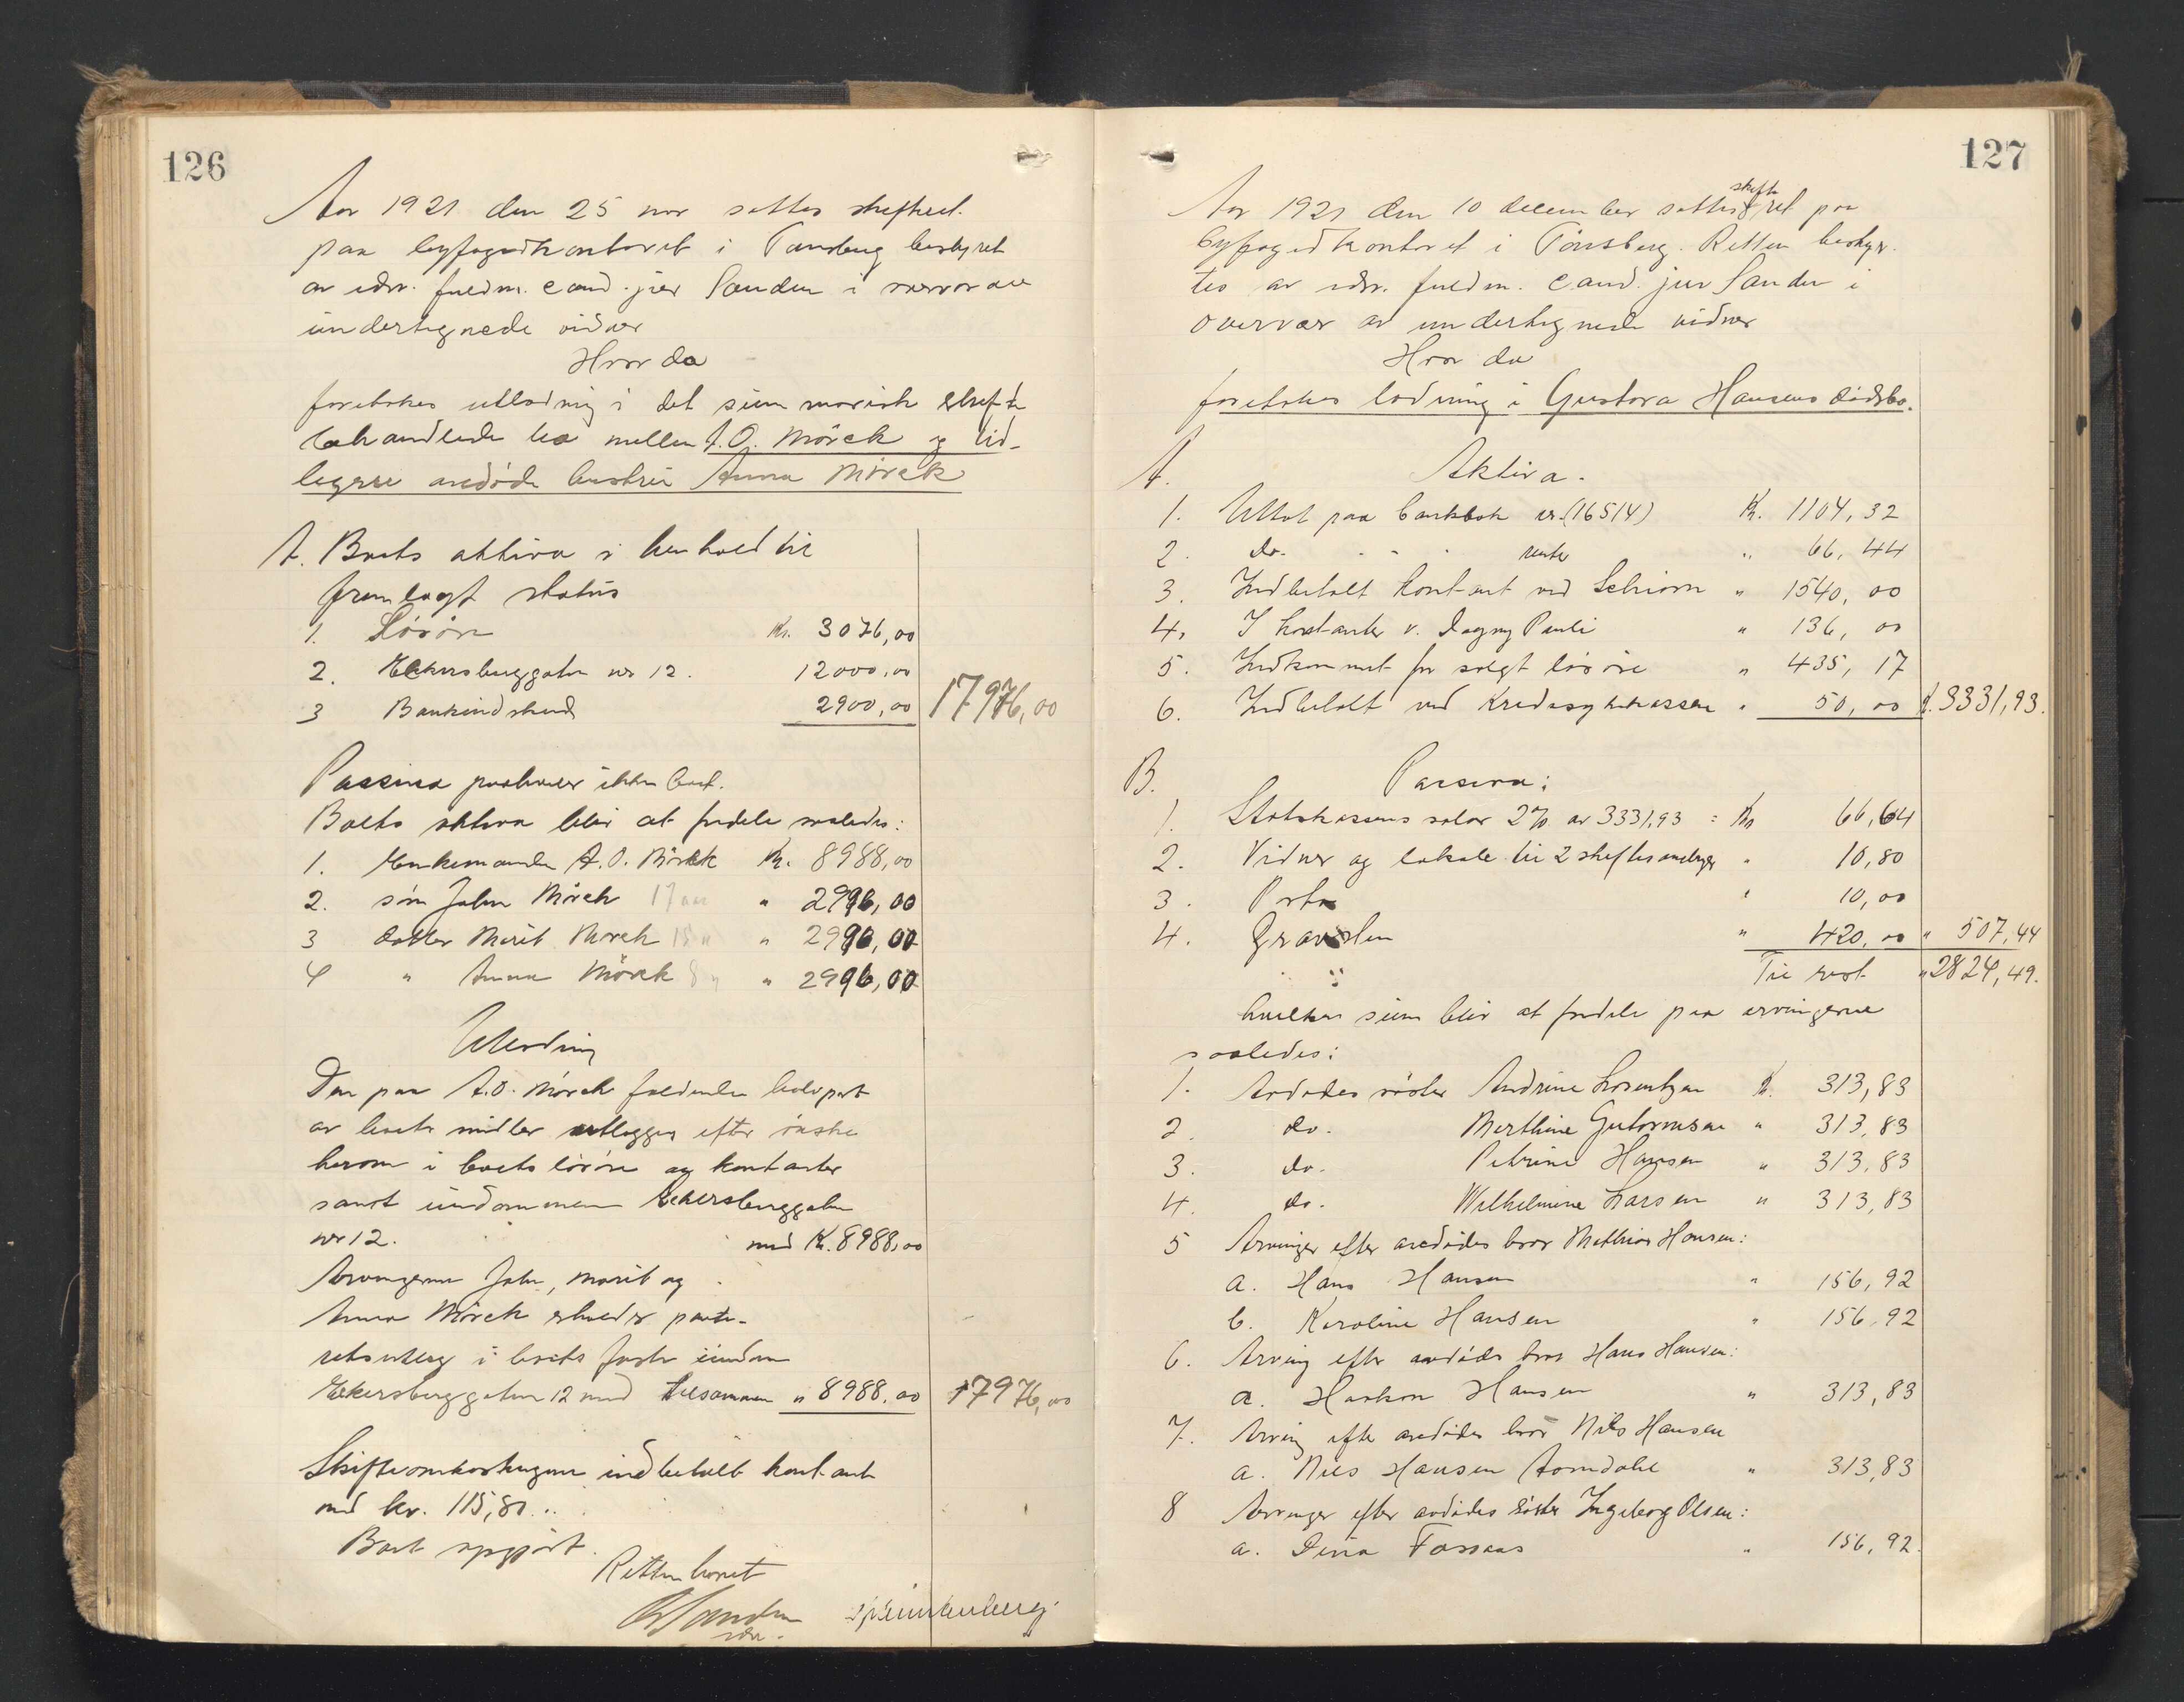 126
Aar 1921 den 25 nov sattes skifteret
paa byfogedkontoret i Tønsberg bestyret
av edsv. fuldm. cand. jur Sanden i overvær av
undertegnede vidner
Hvor da
foretokes utlodning i det summarisk skifte
behandlede bo mellem A.O. Mörck og tid-
ligere avdøde hustru Anna Mörck
A. Boets aktiva i henhold til
fremlagt status
1. Løsøre Kr. 3076,00
2. Eckersberggaten nr 12. 12000,00
3 Bankindskud 2900,00 17976,00
Passiva paahviler ikke boet.
Boets aktiva blir at fordele saaledes:
1. Enkemanden A.O. Mörck Kr. 8988,00
2. søn John Mörck 17 aar " 2996,00
3 datter Marit Mörck 15 " " 2996,00
4 " Anna Mörck 8 " " 2996,00
Utlodning
Den paa A.O. Mörck faldende halvpart
av boets midler utlegges efter ønske
herom i boets løsøre og kontanter
samt eiendommen Eckersberggaten
nr 12. med Kr. 8988,00
Arvingerne John, Marit og
Anna Mörck erholder pante-
retsutlæg i boets faste eiendom
Eckersberggaten 12 med tilsammen " 8988,00 17976,00
Skifteomkostningene indbetalt kontant
med kr. 115,80..
Boet opgjort.
Retten hævet
Sanden
edsv.
127
Aar 1921 den 10 december sattes skifte
ret paa
byfogedkontoret i Tønsberg. Retten bestyr-
tes av edsv. fuldm. cand. jur Sanden i
overvær av undertegnede vidner
Hvor da
foretokes lodning i Gustava Hansens dødsbo.
A. Aktiva.
1. Uttat paa bankbok nr. (16514) Kr. 1104,32
2. do. " " " renter " 66,44
3. Indbetalt kontant ved Schiørn " 1540,00
4. I kontanter v. Dagny Pauli " 136,00
5. Indkommet for solgt løsøre " 435,17
6. Indbetalt ved Kredssykekassen " 50,00 K. 3331,93.
B. Passiva:
1. Statskassens salær 2% av 3331,93 = Kr 66,64
2. Vidner og lokale til 2 skiftesamlinger " 10,80
3. Porto " 10,00
4. Gravsten " 420,00 " 507,44
Til rest " 2824,49.
hvilken sum blir at fordele paa arvingerne
saaledes:
1. Avdødes søster Andrine Lorentzen K. 313,83
2. do. Marthine Gutormsen " 313,83
3. do. Petrine Hansen " 313,83
4. do. Wilhelmine Larsen " 313,83
5 Arvinger efter avdødes bror Mathias Hansen:
a. Hans Hansen " 156,92
b. Karoline Hansen " 156,92
6. Arving efter avdødes bror Hans Hansen:
a. Haakon Hansen " 313,83
7. Arving efter avdødes bror Nils Hansen
a. Nils Hansen Aorndahl " 313,83
8 Arvinger efter avdødes søster Ingeborg Olsen:
a. Dina Fossaas " 156,92.